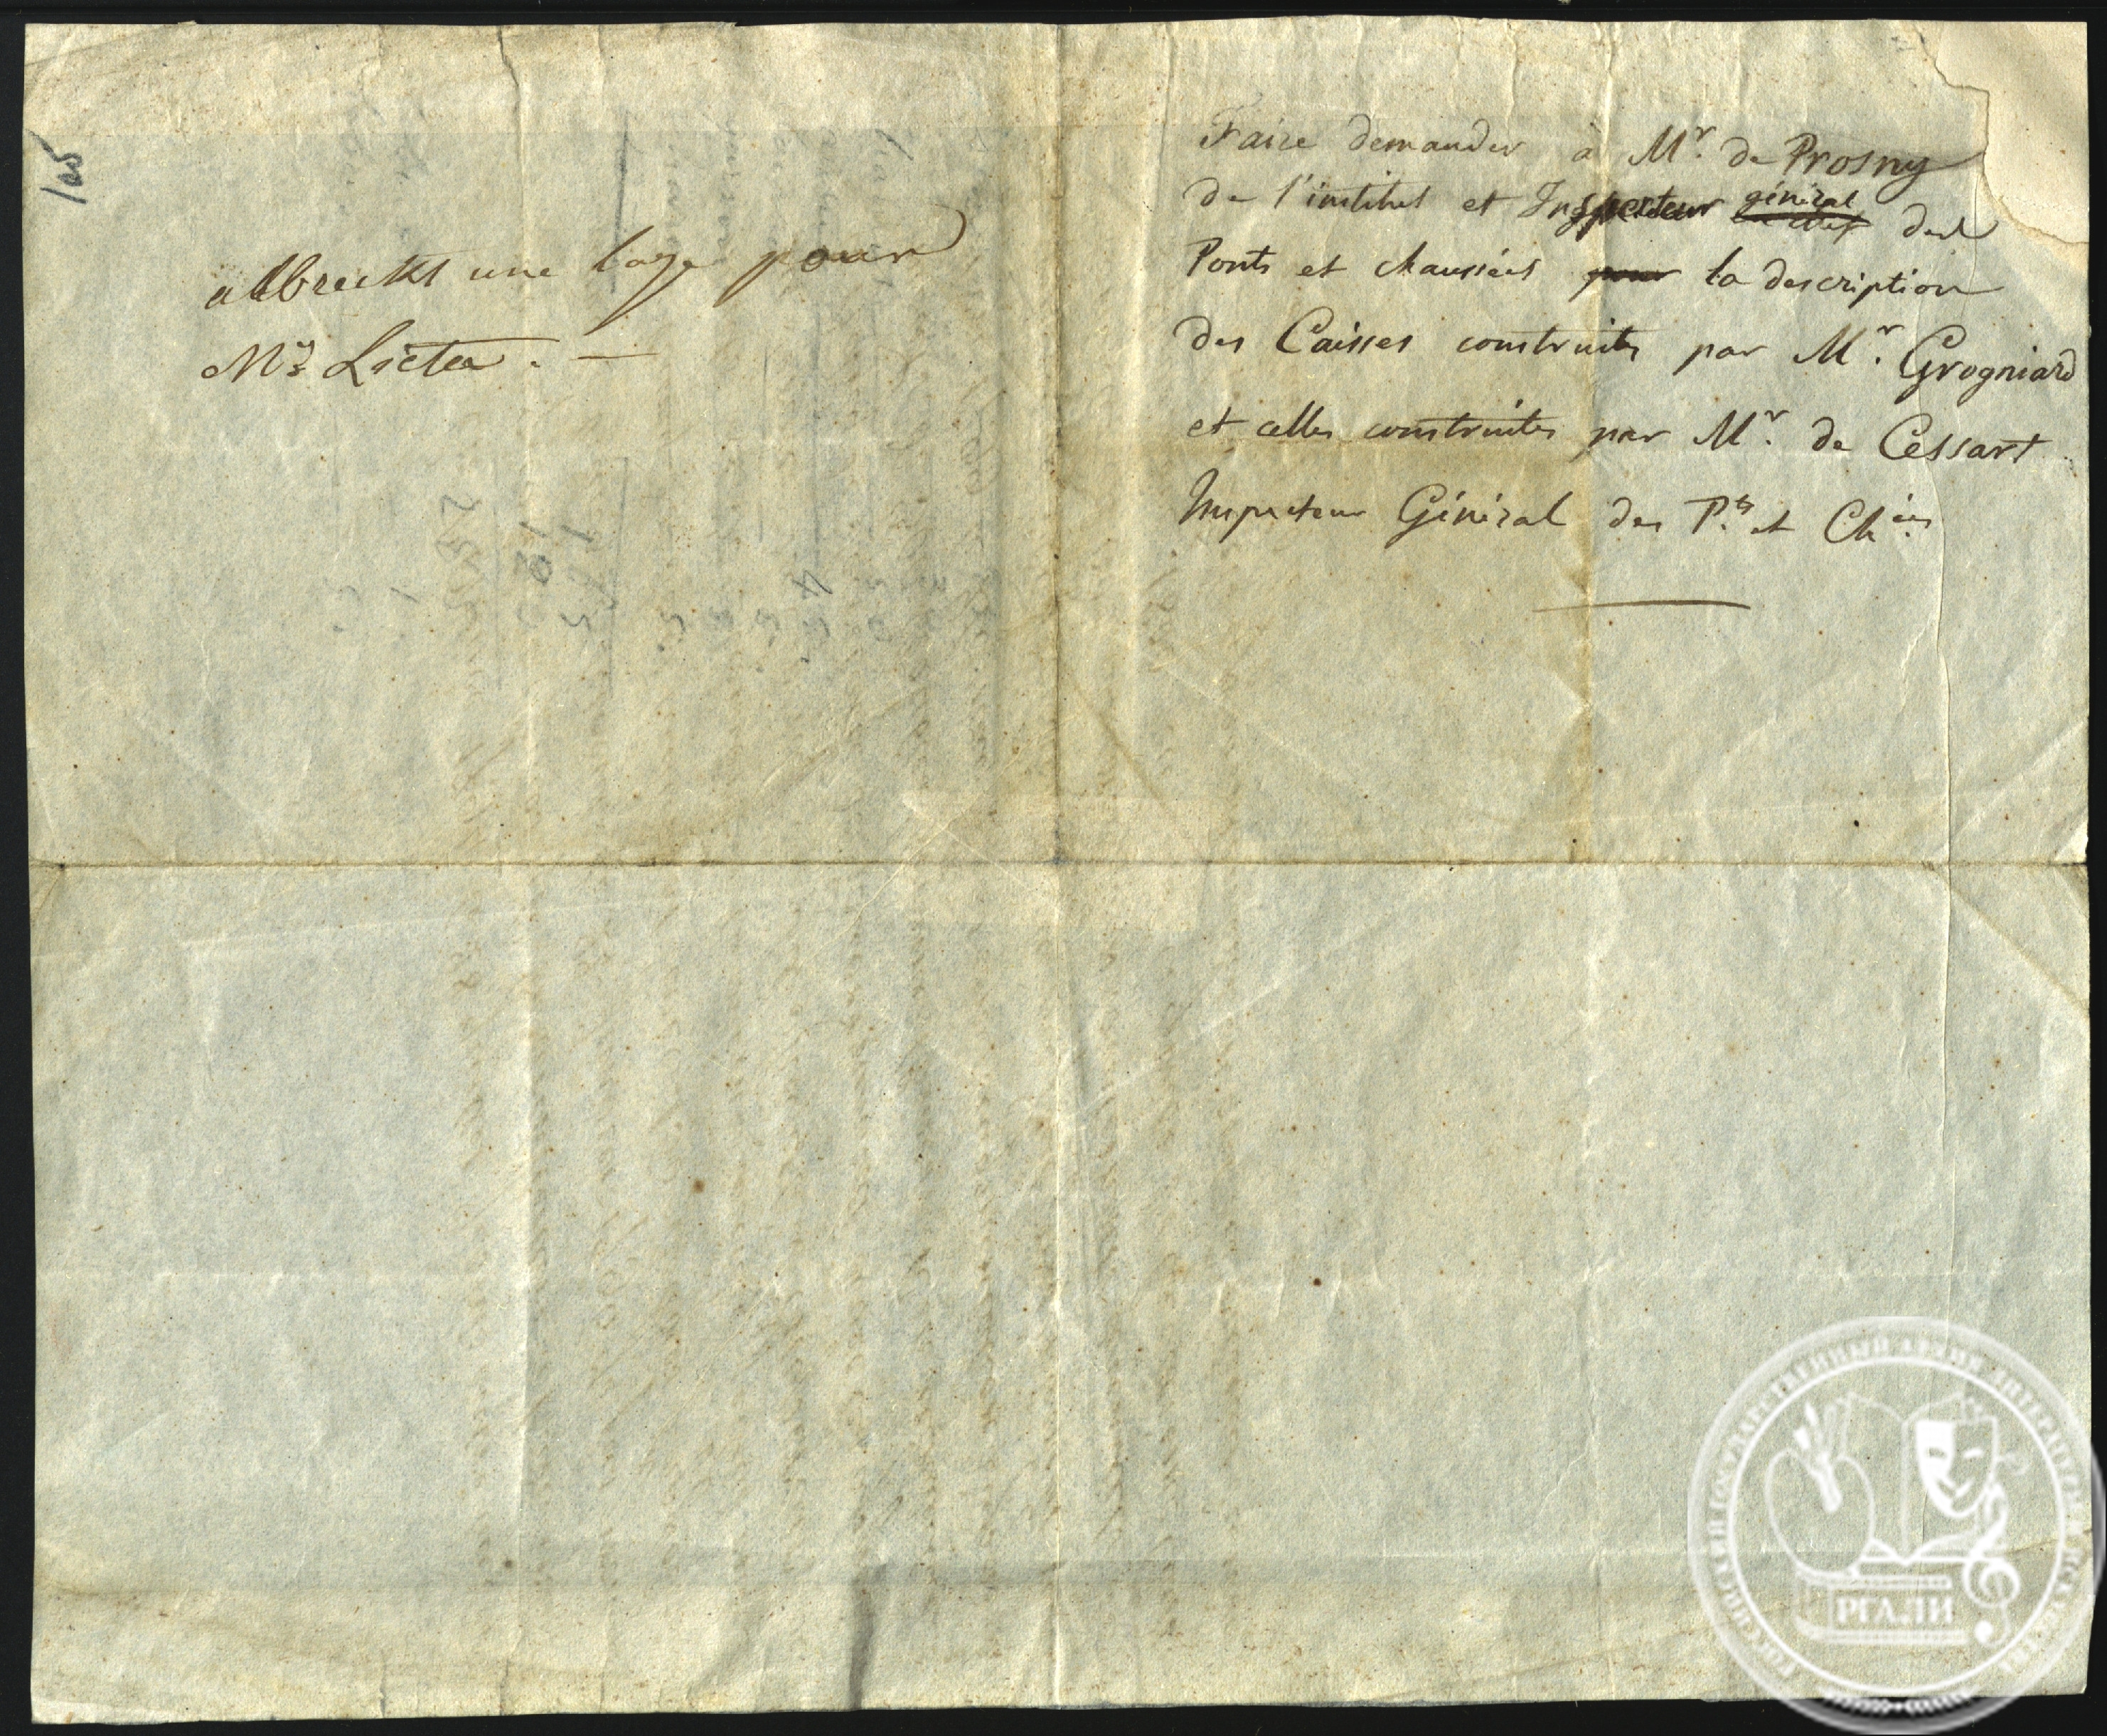 105
albrecht une loge pour
Mr Lieta. —
Faire demander à Mr. de Prosny
de l'institut et Inspecteur général des
Ponts et chaussées pour la description
des Caisses construites par Mr. Grogniard
et celles construites par Mr. de Cessart
Inspecteur Général des P.ts et Ch.ées
РГАЛИ